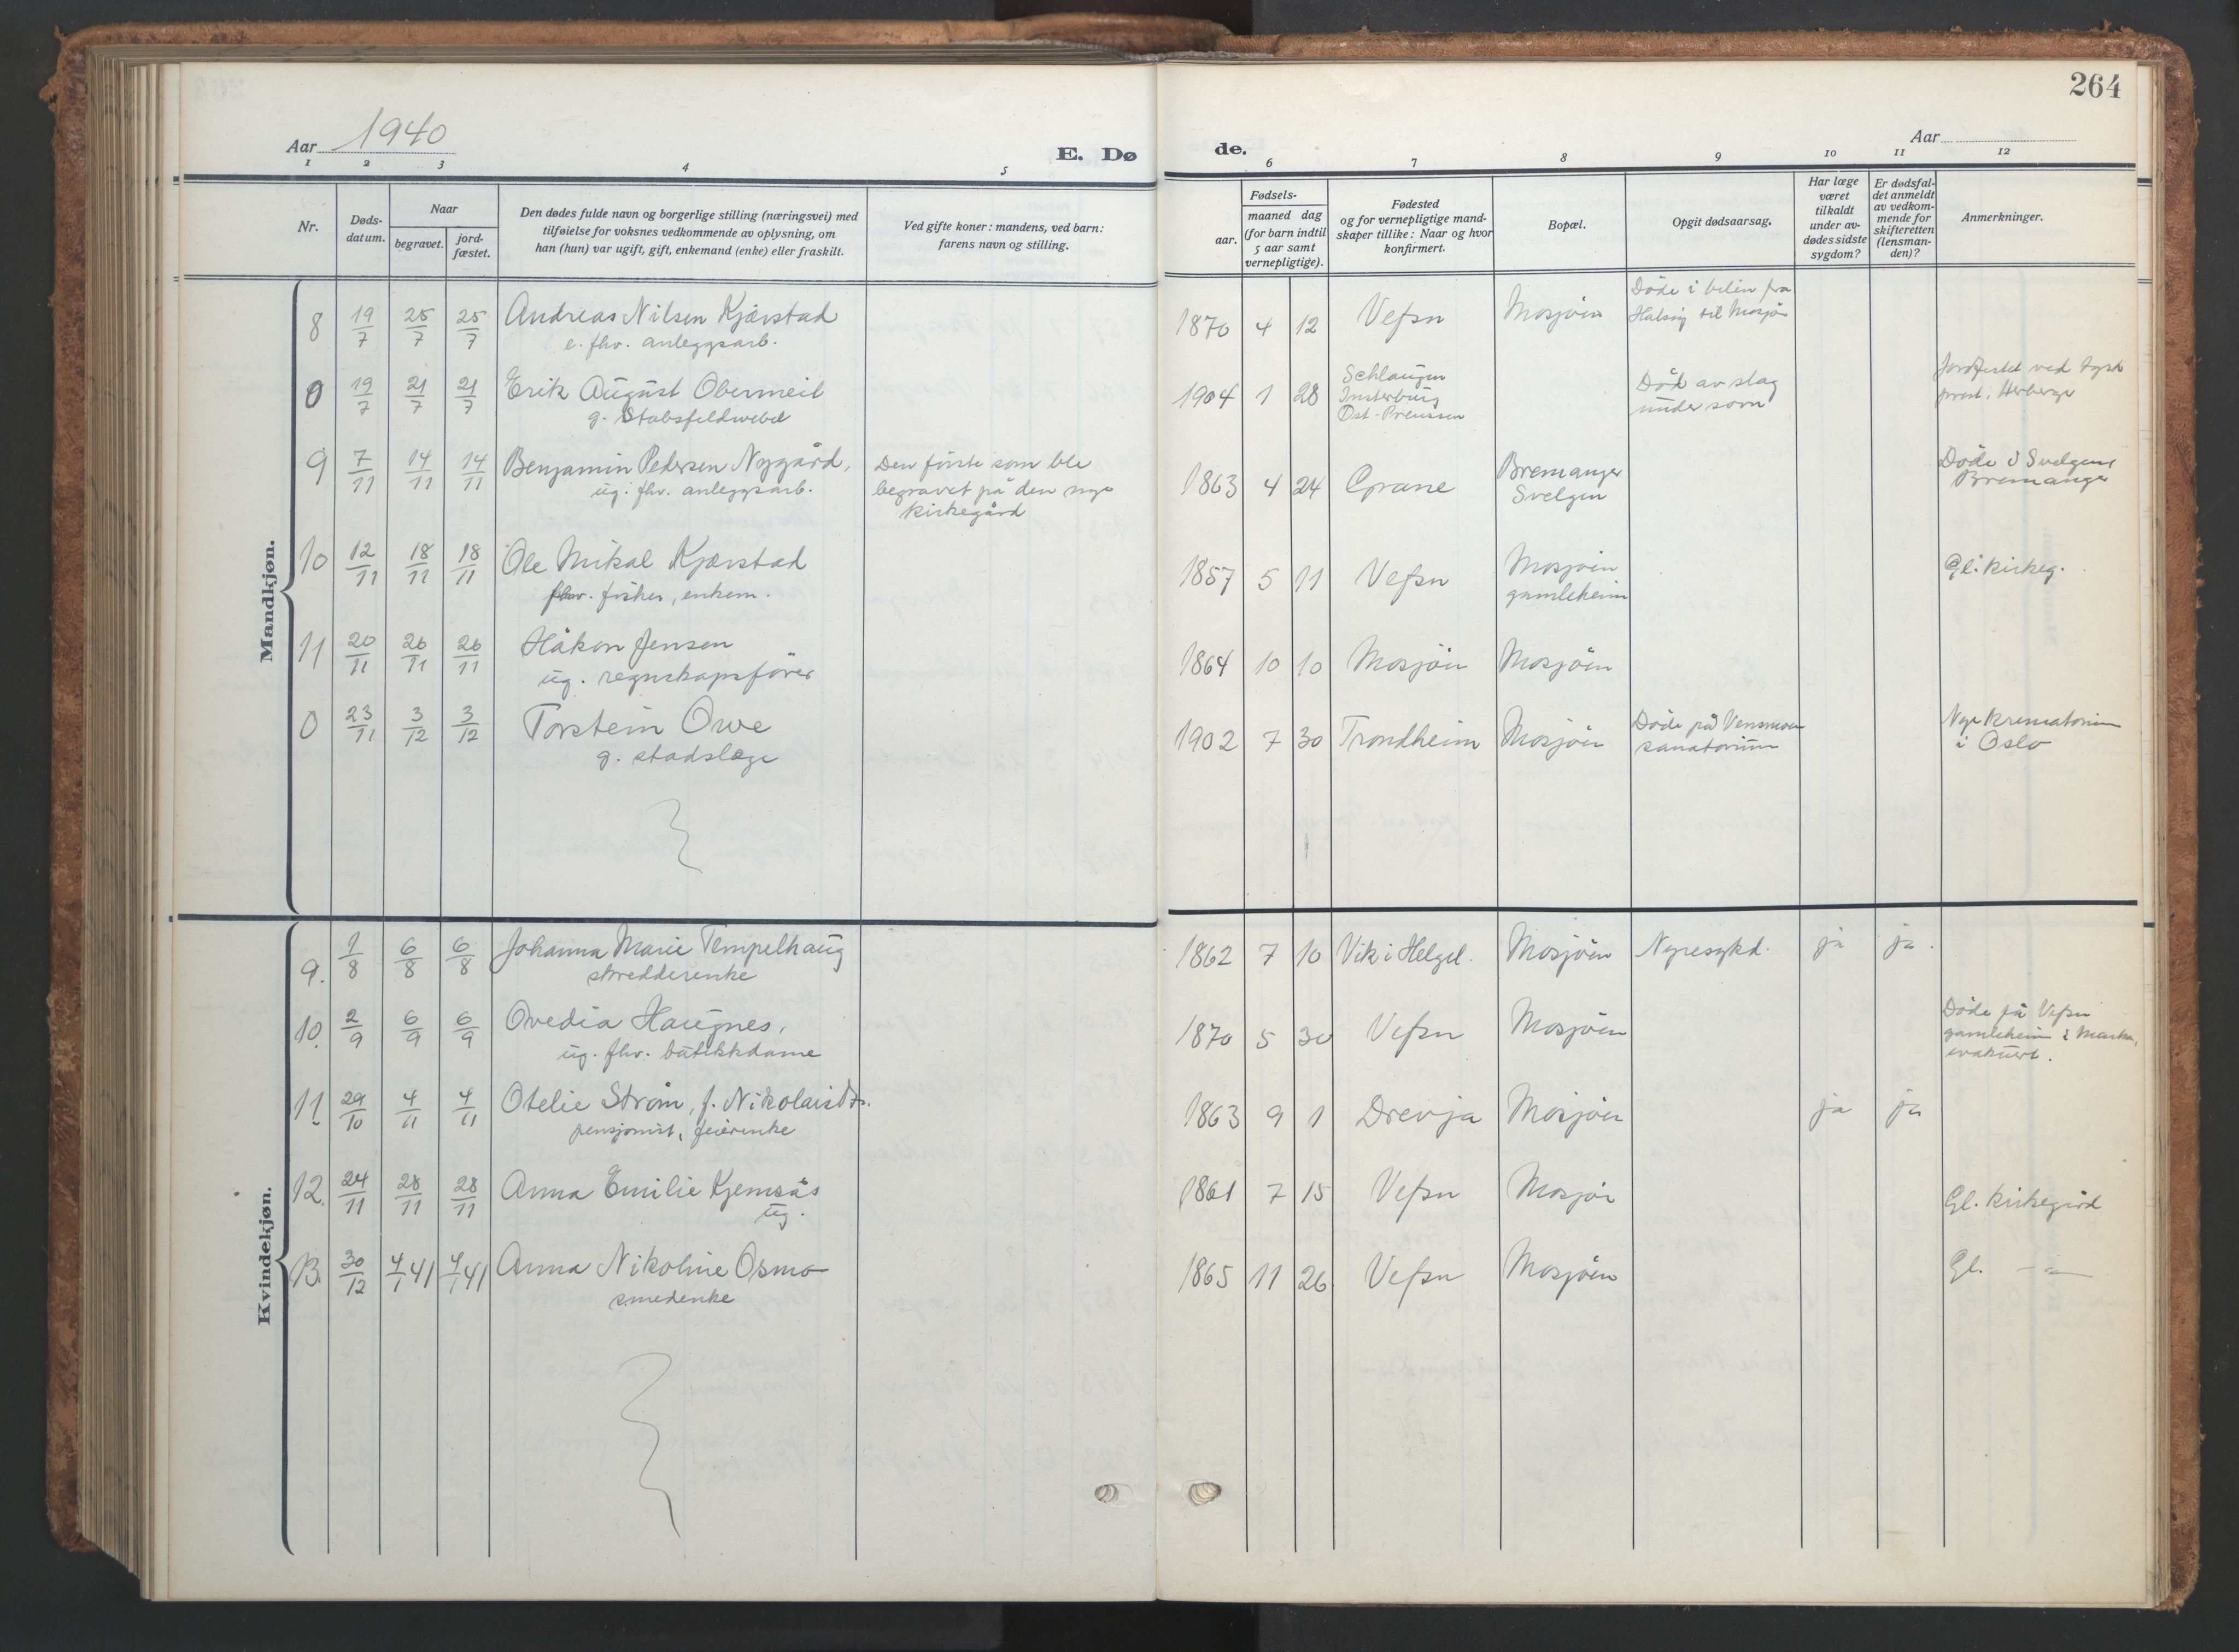 264
Aar 1940
E. Dø
de.
Aar
1 2 3 4 5 6 7 8 9 10 11 12
Nr.
Døds-
datum.
Naar
begravet.
jord-
fæstet.
Den dødes fulde navn og borgerlige stilling (næringsvei) med
tilføielse for voksnes vedkommende av oplysning, om
han (hun) var ugift, gift, enkemand (enke) eller fraskilt.
Ved gifte koner: mandens, ved barn:
farens navn og stilling.
Fødsels-
aar.
maaned dag
(for barn indtil
5 aar samt
vernepligtige).
Fødested
og for vernepligtige mand-
skaper tillike: Naar og hvor
konfirmert.
Bopæl.
Opgit dødsaarsag.
Har læge
været
tilkaldt
under av-
dødes sidste
sygdom?
Er dødsfal-
det anmeldt
av vedkom-
mende for
skifteretten
(lensman-
den)?
Anmerkninger.
Mandkjøn.
8 19/7 25/7 25/7 Andreas Nilsen Kjærstad
e. fhv. anleggsarb.
1870 4 12 Vefsn Mosjøen
Døde i bilen fra
Halsøy til Mosjø
0 19/7 21/7 21/7 Erik August Obermeit
g. Stabsfeldwebel
1904 1 28
Insterburg
Ost-Preussen
Død av slag
under søvn
Jordfestet ved tysk
prest, Herberge
9 7/11 14/11 14/11 Benjamin Pedersen Nygård,
ug. fhv. anleggsarb.
Den første som ble
begravet på den nye
kirkegård
1863 4 24 Grane
Bremanger
Svelgen
Døde i Svelgen
Bremanger
10 12/11 18/11 18/11 Ole Mikal Kjærstad
fhv. fisker, enkem.
1857 5 11 Vefsn
Mosjøen
gamleheim
Gl. kirkeg.
11 20/11 26/11 26/11 Håkon Jensen
ug. regnskapsfører
1864 10 10 Mosjøen Mosjøen
0 23/11 3/12 3/12 Torstein Owe
g. stadslæge
1902 7 30 Trondheim Mosjøen
Døde på Vensmoen
sanatorium
Nye Krematorium
i Oslo
Kvindekjøn.
9. 1/8 6/8 6/8 Johanna Marie Tempelhaug
skredderenke
1862 7 10 Vik i Helgel. Mosjøen Nyresykd. ja ja.
10. 2/9 6/9 6/9 Ovedia Haugnes,
ug. fhv. butikkdame
1870 5 30 Vefsn Mosjøen
Døde på Vefsn
gamleheim i Marka,
evakuert.
11. 29/10 4/11 4/11 Otelie Strøm, f. Nikolaisdtr.
pensjonist, feierenke
1863 9 1 Drevja Mosjøen ja ja
12. 24/11 28/11 28/11 Anna Emilie Kjemsås
ug.
1861 7 15 Vefsn Mosjøn Gl. kirkegård
13. 30/12 4/1 41 4/1 41 Anna Nikoline Osmo
smedenke
1865 11 26 Vefsn Mosjøen Gl. —"—